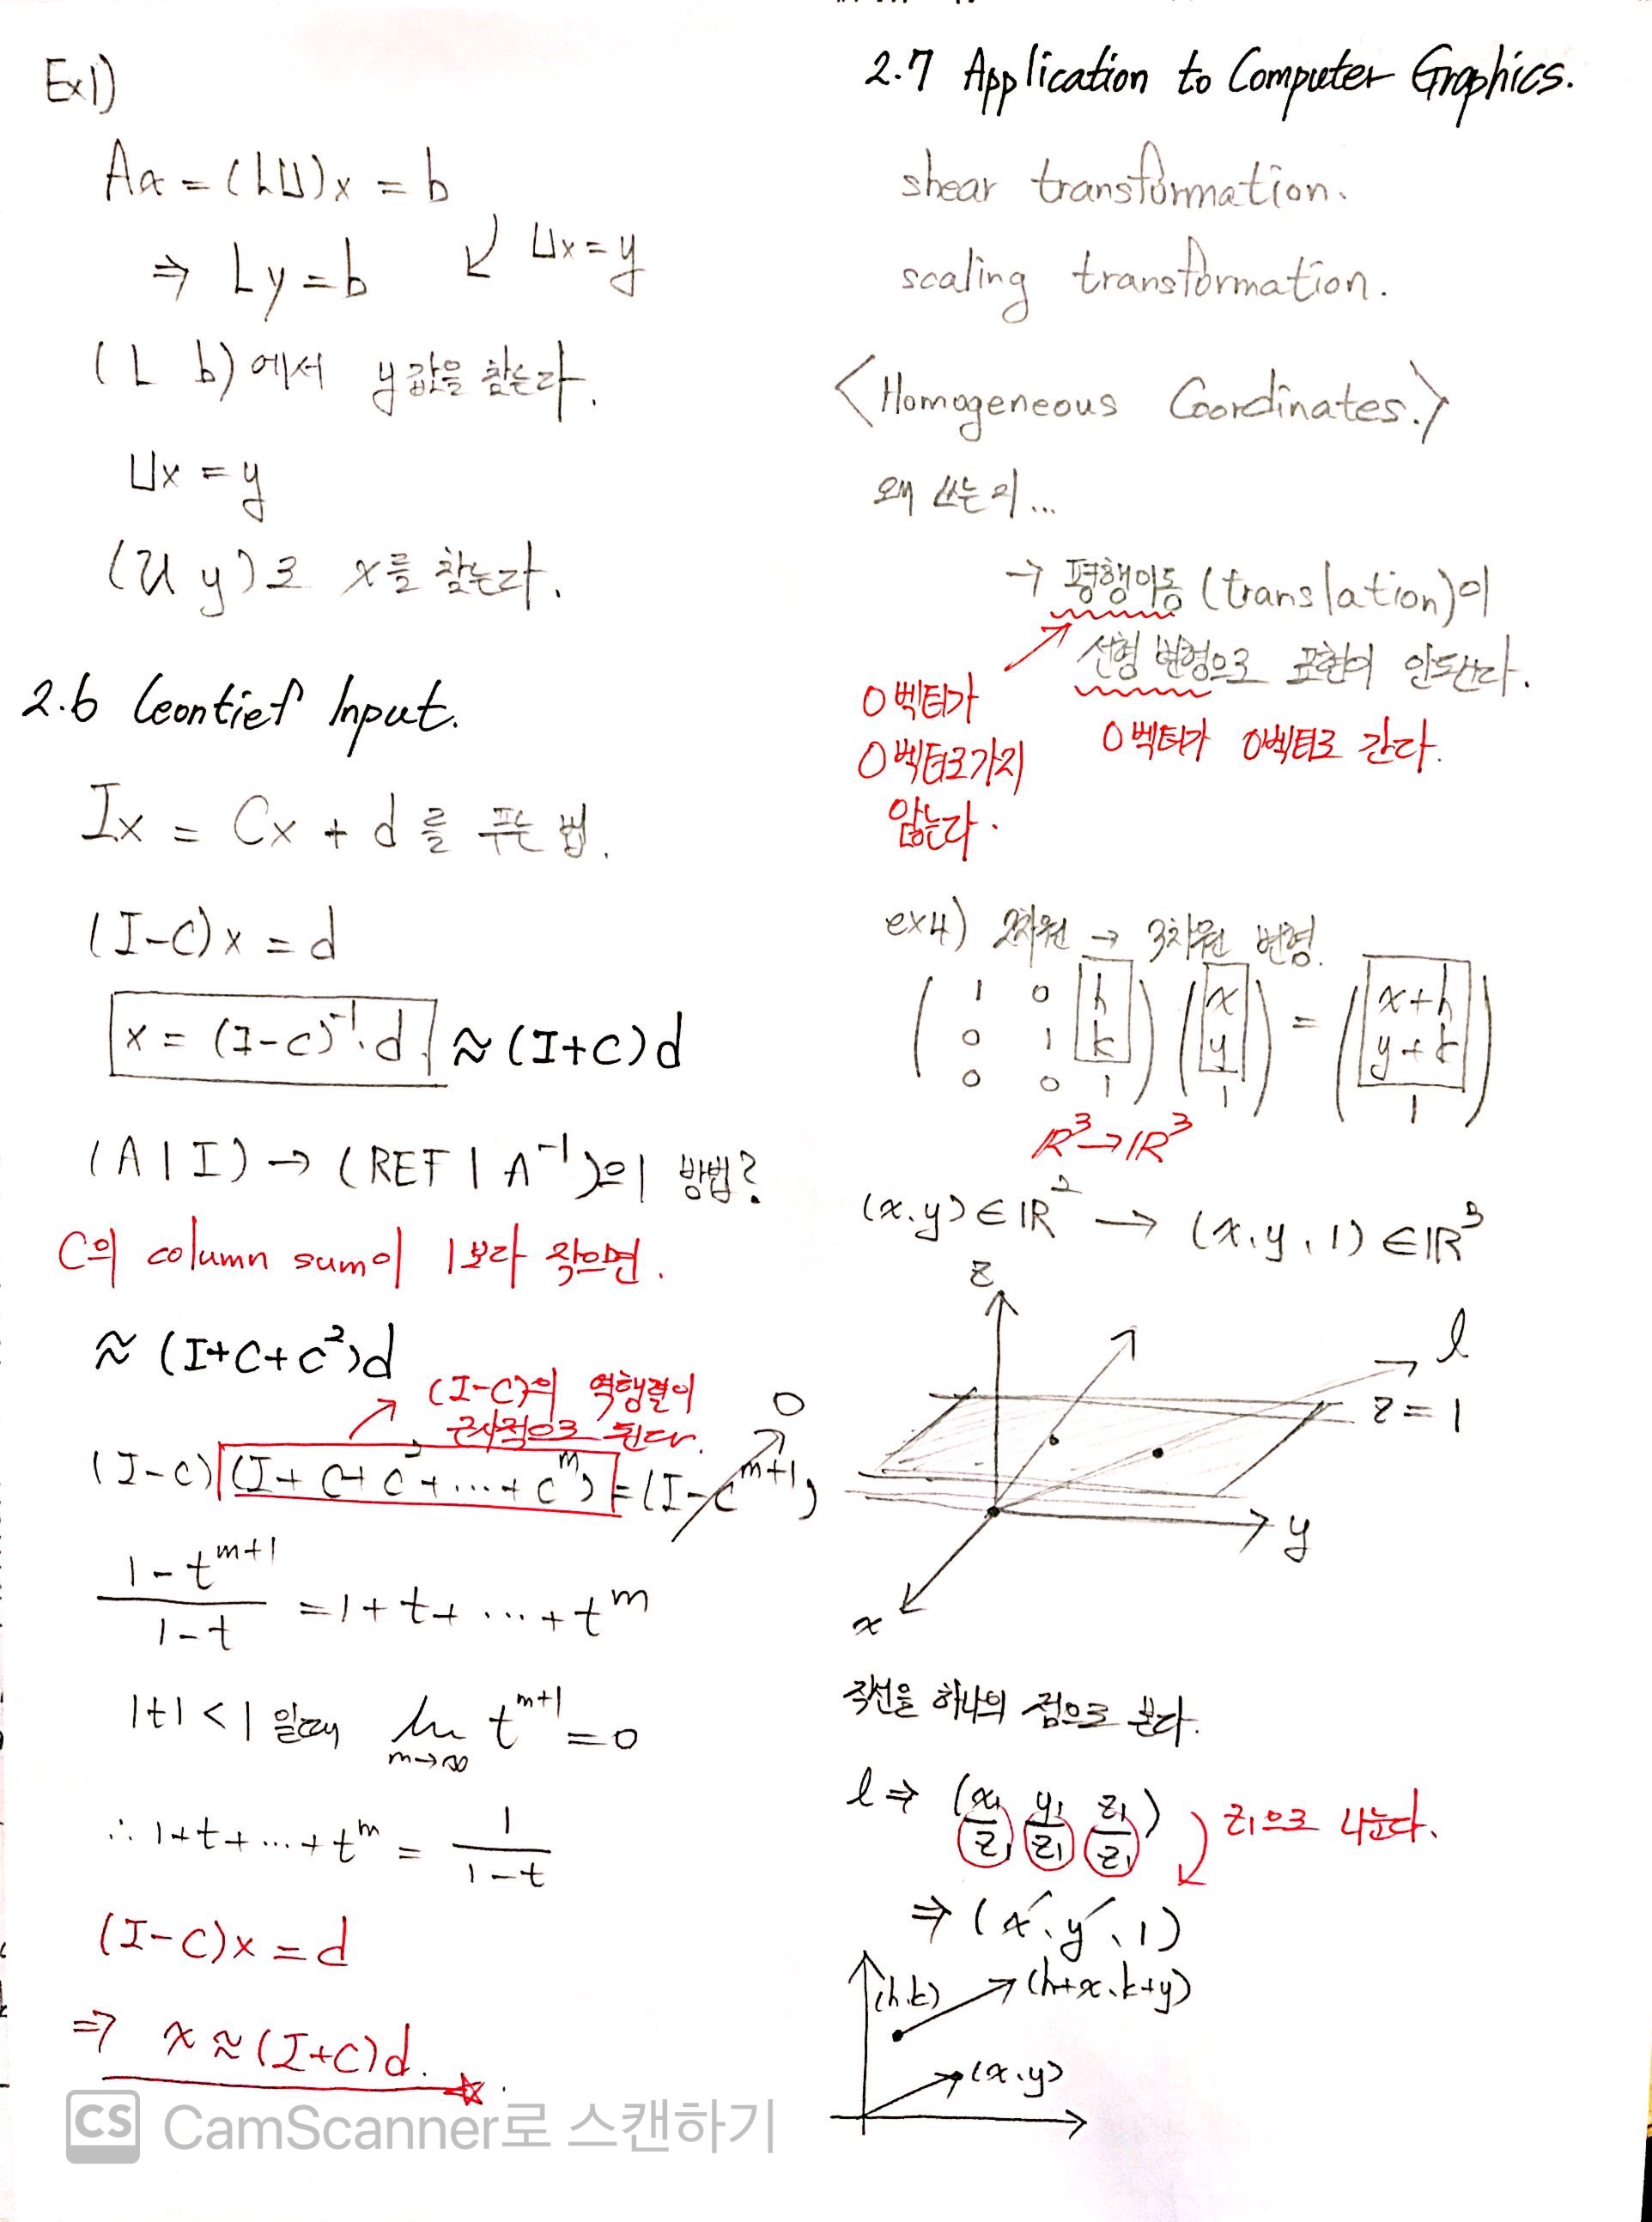 Ex1)
Ax = (LU)x = b
⇒ Ly = b ↙ Ux = y
(L b)에서 y값을 찾는다.
Ux = y
(U y)로 x를 찾는다.
2.6 Leontief Input.
Ix = Cx + d를 푸는 법.
(I-C)x = d
x = (I-C)⁻¹·d. ≈ (I+C)d
(A | I) → (REF | A⁻¹)의 방법?
C의 column sum이 1보다 작으면.
≈ (I+C+C²)d
(I-C)의 역행렬이
근사적으로 된다.
(I-C)(I+C+C²+...+Cᵐ) = (I-Cᵐ⁺¹) 0
(1-tᵐ⁺¹)/(1-t) = 1+t+...+tᵐ
|t| < 1 일때 lim m→∞ tᵐ⁺¹ = 0
∴ 1+t+...+tᵐ = 1/(1-t)
(I-C)x = d
⇒ x ≈ (I+C)d.
CS CamScanner로 스캔하기
2.7 Application to Computer Graphics.
shear transformation.
scaling transformation.
<Homogeneous Coordinates.>
왜 쓰는지...
→ 평행이동 (translation)이
선형 변형으로 표현이 안된다.
0벡터가
0벡터로 가지
않는다.
0벡터가 0벡터로 간다.
ex4) 2차원 → 3차원 변형.
( 1 0 h ) ( x ) = ( x+h )
( 0 1 k ) ( y ) = ( y+k )
( 0 0 1 ) ( 1 ) = ( 1 )
ℝ³→ℝ³
(x.y)∈ℝ² → (x.y.1)∈ℝ³
z
l
z=1
y
x
직선을 하나의 점으로 본다.
l ⇒ (x₁/z₁ y₁/z₁ z₁/z₁) z₁으로 나눈다.
⇒ (x′、y′、1)
(h.k) (h+x.k+y)
(x.y)